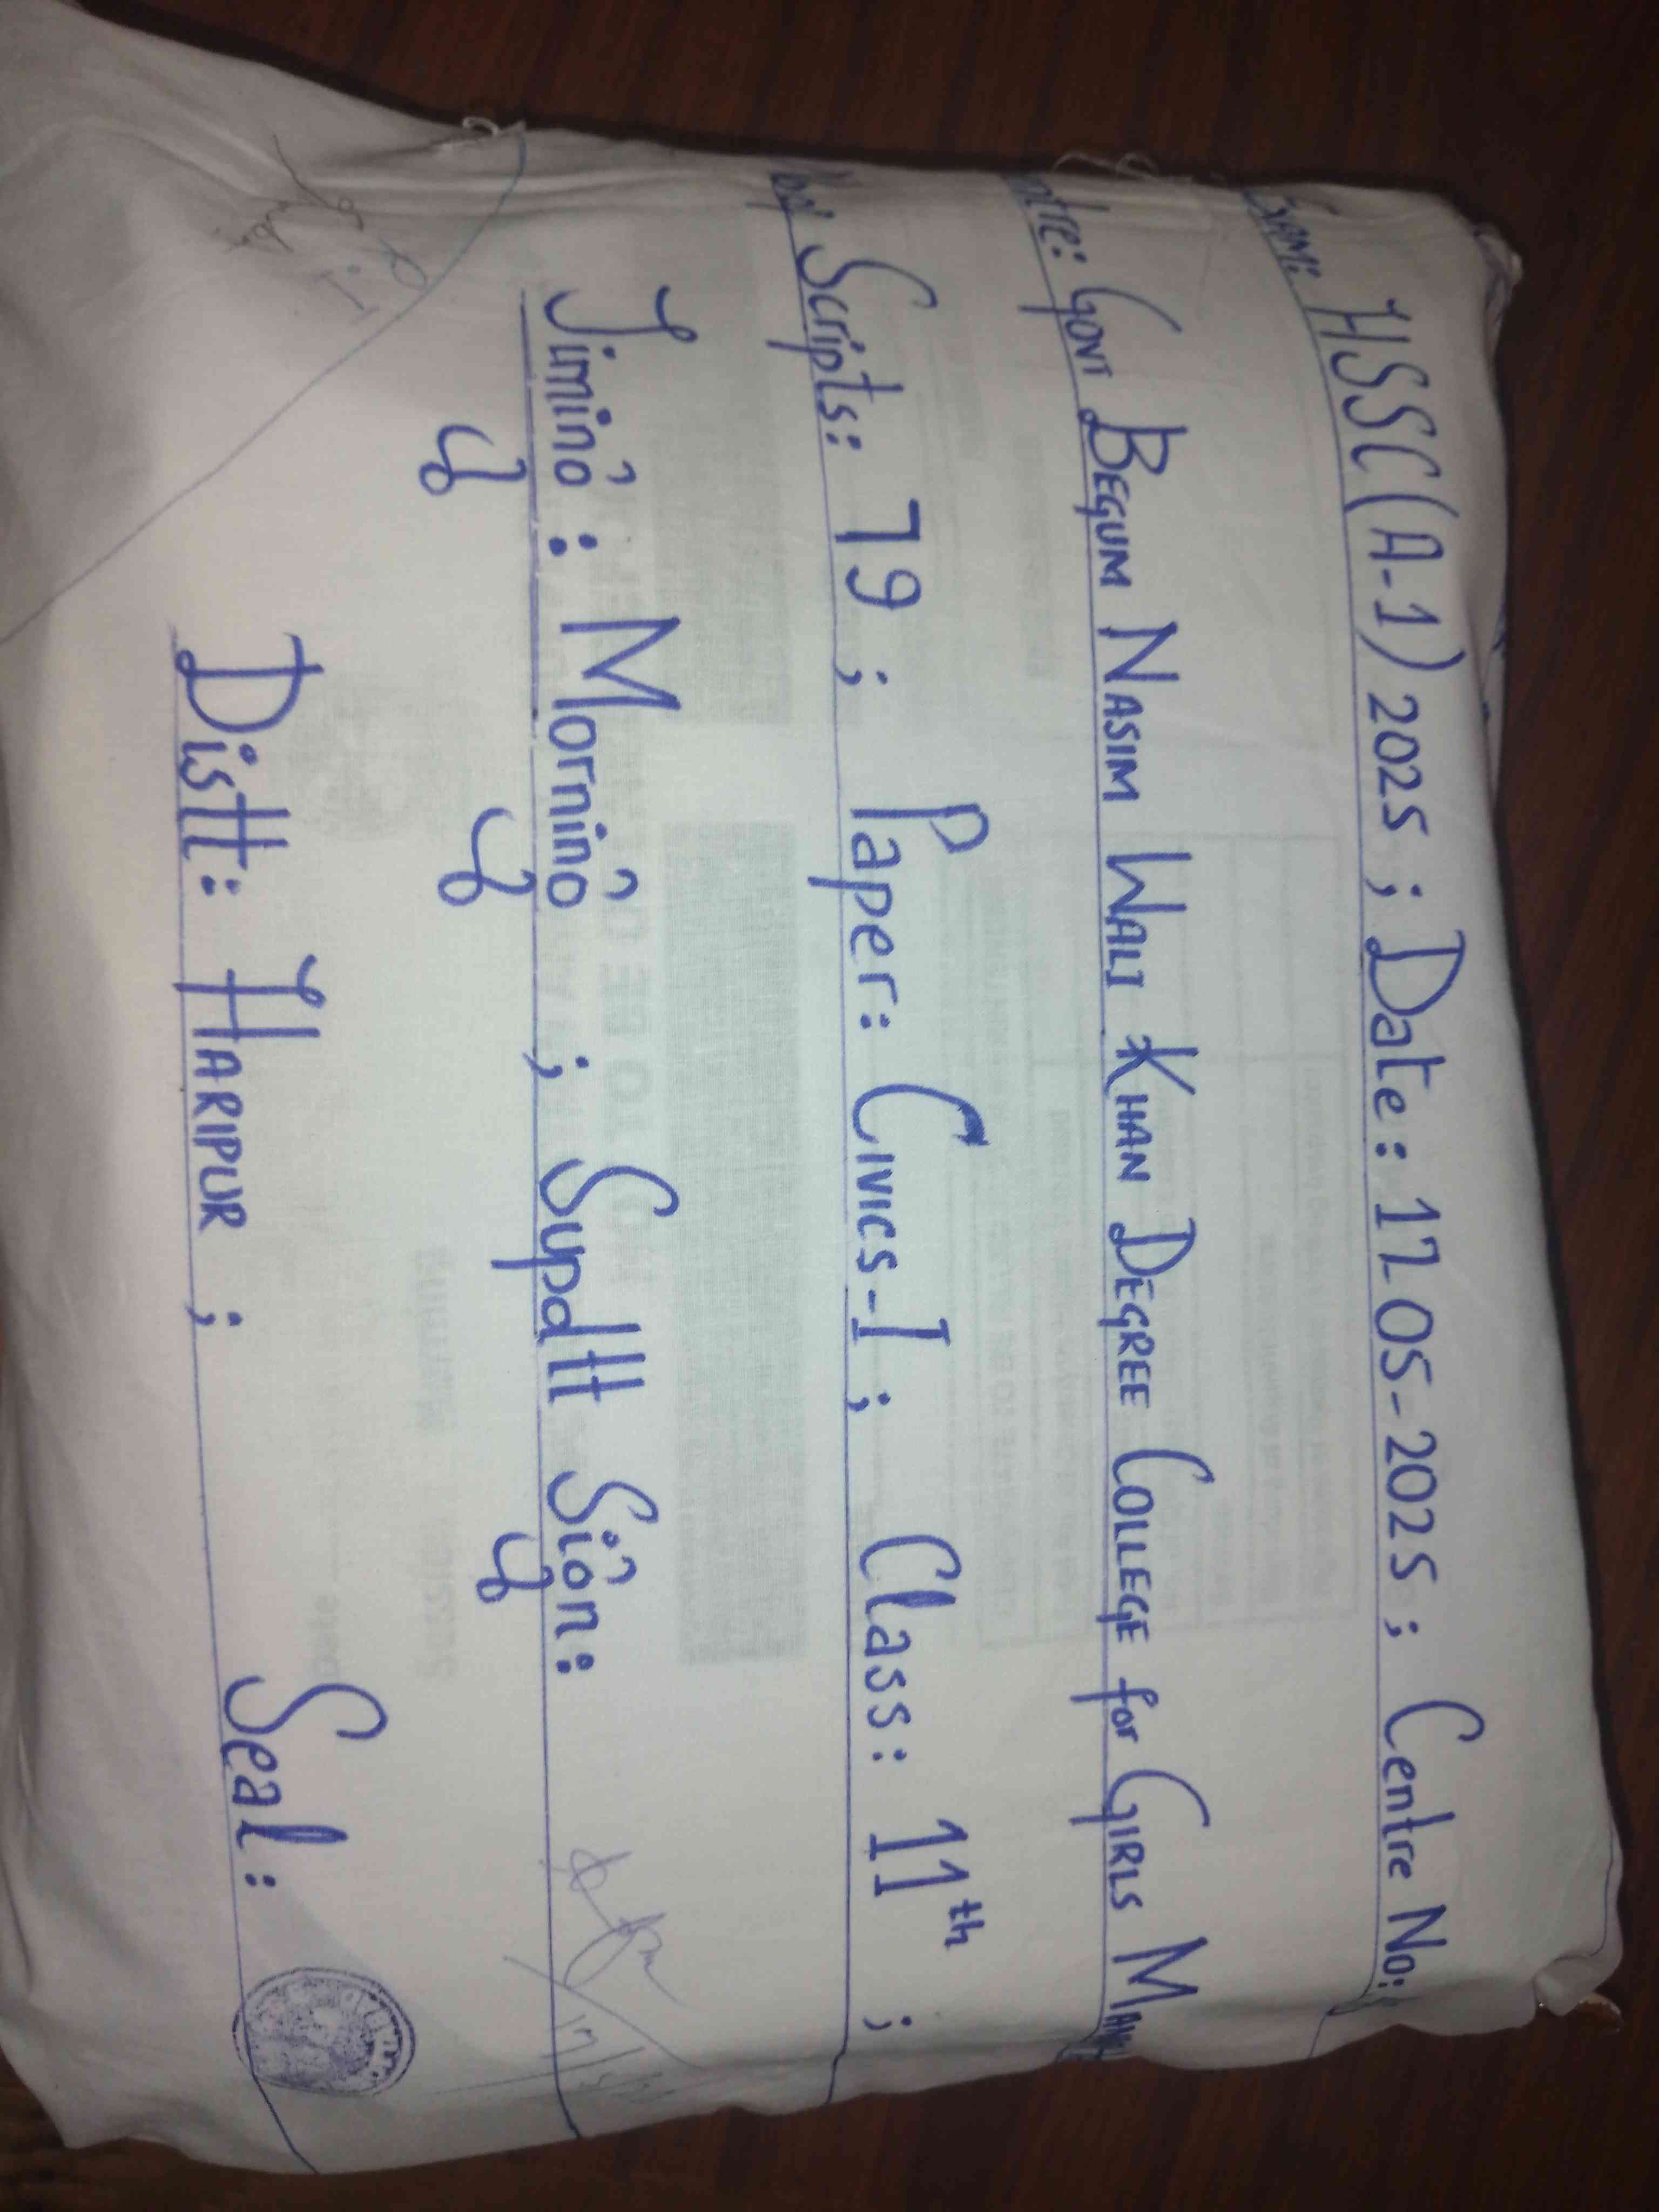 Exam: HSSC(A-1) 2025 ; Date: 17-05-2025 ; Centre No:
Centre: Govt Begum Nasim Wali Khan Degree College for Girls
Scripts: 79 ; Paper: Civics-I ; Class: 11th ;
Timing: Morning ; Supdtt Sign:
Distt: Haripur ; Seal: